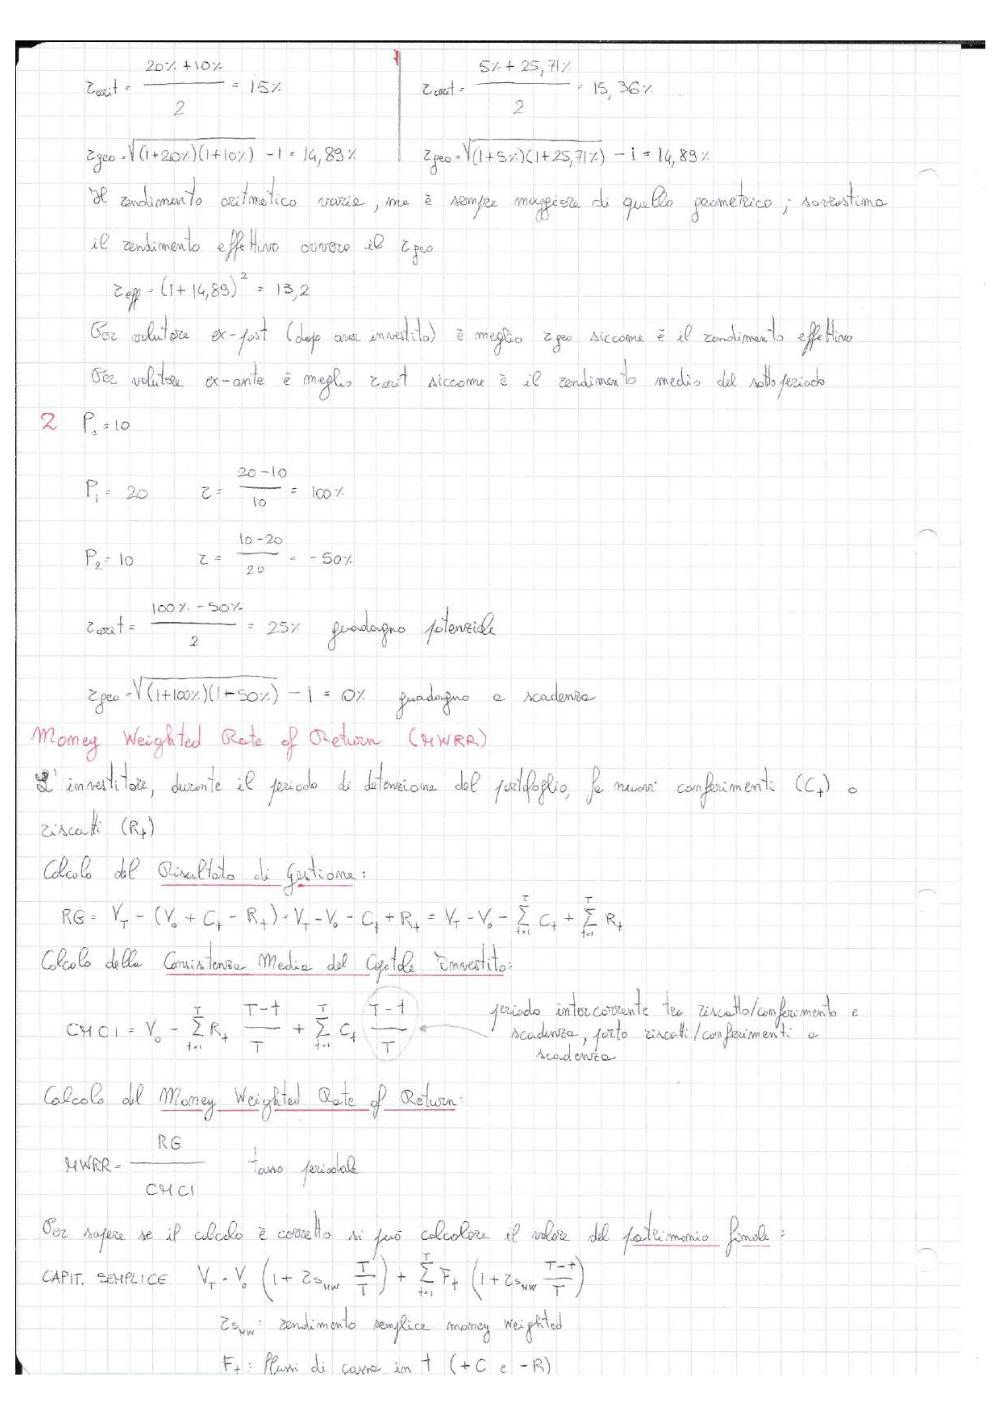 r arit = (20% + 10%) / 2 = 15%
r arit = (5% + 25,71%) / 2 = 15,36%
r geo = √(1+20%)(1+10%) - 1 = 14,89%
r geo = √(1+5%)(1+25,71%) - 1 = 14,89%
Il rendimento aritmetico varia, ma è sempre maggiore di quello geometrico; sovrastima
il rendimento effettivo ovvero il r geo
r eff = (1+14,89)² = 13,2
Per valutare ex-post (dopo aver investito) è meglio r geo siccome è il rendimento effettivo
Per valutare ex-ante è meglio r arit siccome è il rendimento medio del sottoperiodo
2 P₀ = 10
P₁ = 20 r = (20-10) / 10 = 100%
P₂ = 10 r = (10-20) / 20 = -50%
r arit = (100% - 50%) / 2 = 25% guadagno potenziale
r geo = √(1+100%)(1-50%) - 1 = 0% guadagno a scadenza
Money Weighted Rate of Return (MWRR)
L'investitore, durante il periodo di detenzione del portafoglio, fa nuovi conferimenti (Ct) o
riscatti (Rt)
Calcolo del Risultato di Gestione:
RG = V_T - (V₀ + Ct - Rt) = V_T - V₀ - Ct + Rt = V_T - V₀ - Σ_{t=1}^{T} Ct + Σ_{t=1}^{T} Rt
Calcolo della Consistenza Media del Capitale Investito:
CMCI = V₀ - Σ_{t=1}^{T} Rt (T-t)/T + Σ_{t=1}^{T} Ct (T-t)/T
periodo intercorrente tra riscatto/conferimento e
scadenza, porto riscatti/conferimenti a
scadenza
Calcolo del Money Weighted Rate of Return:
MWRR = RG / CMCI tasso periodale
Per sapere se il calcolo è corretto si può calcolare il valore del patrimonio finale:
CAPIT. SEMPLICE V_T = V₀ (1 + rs_MW T/T) + Σ_{t=1}^{T} Ft (1 + rs_MW (T-t)/T)
rs_MW: rendimento semplice money weighted
Ft: flussi di cassa in t (+C e -R)